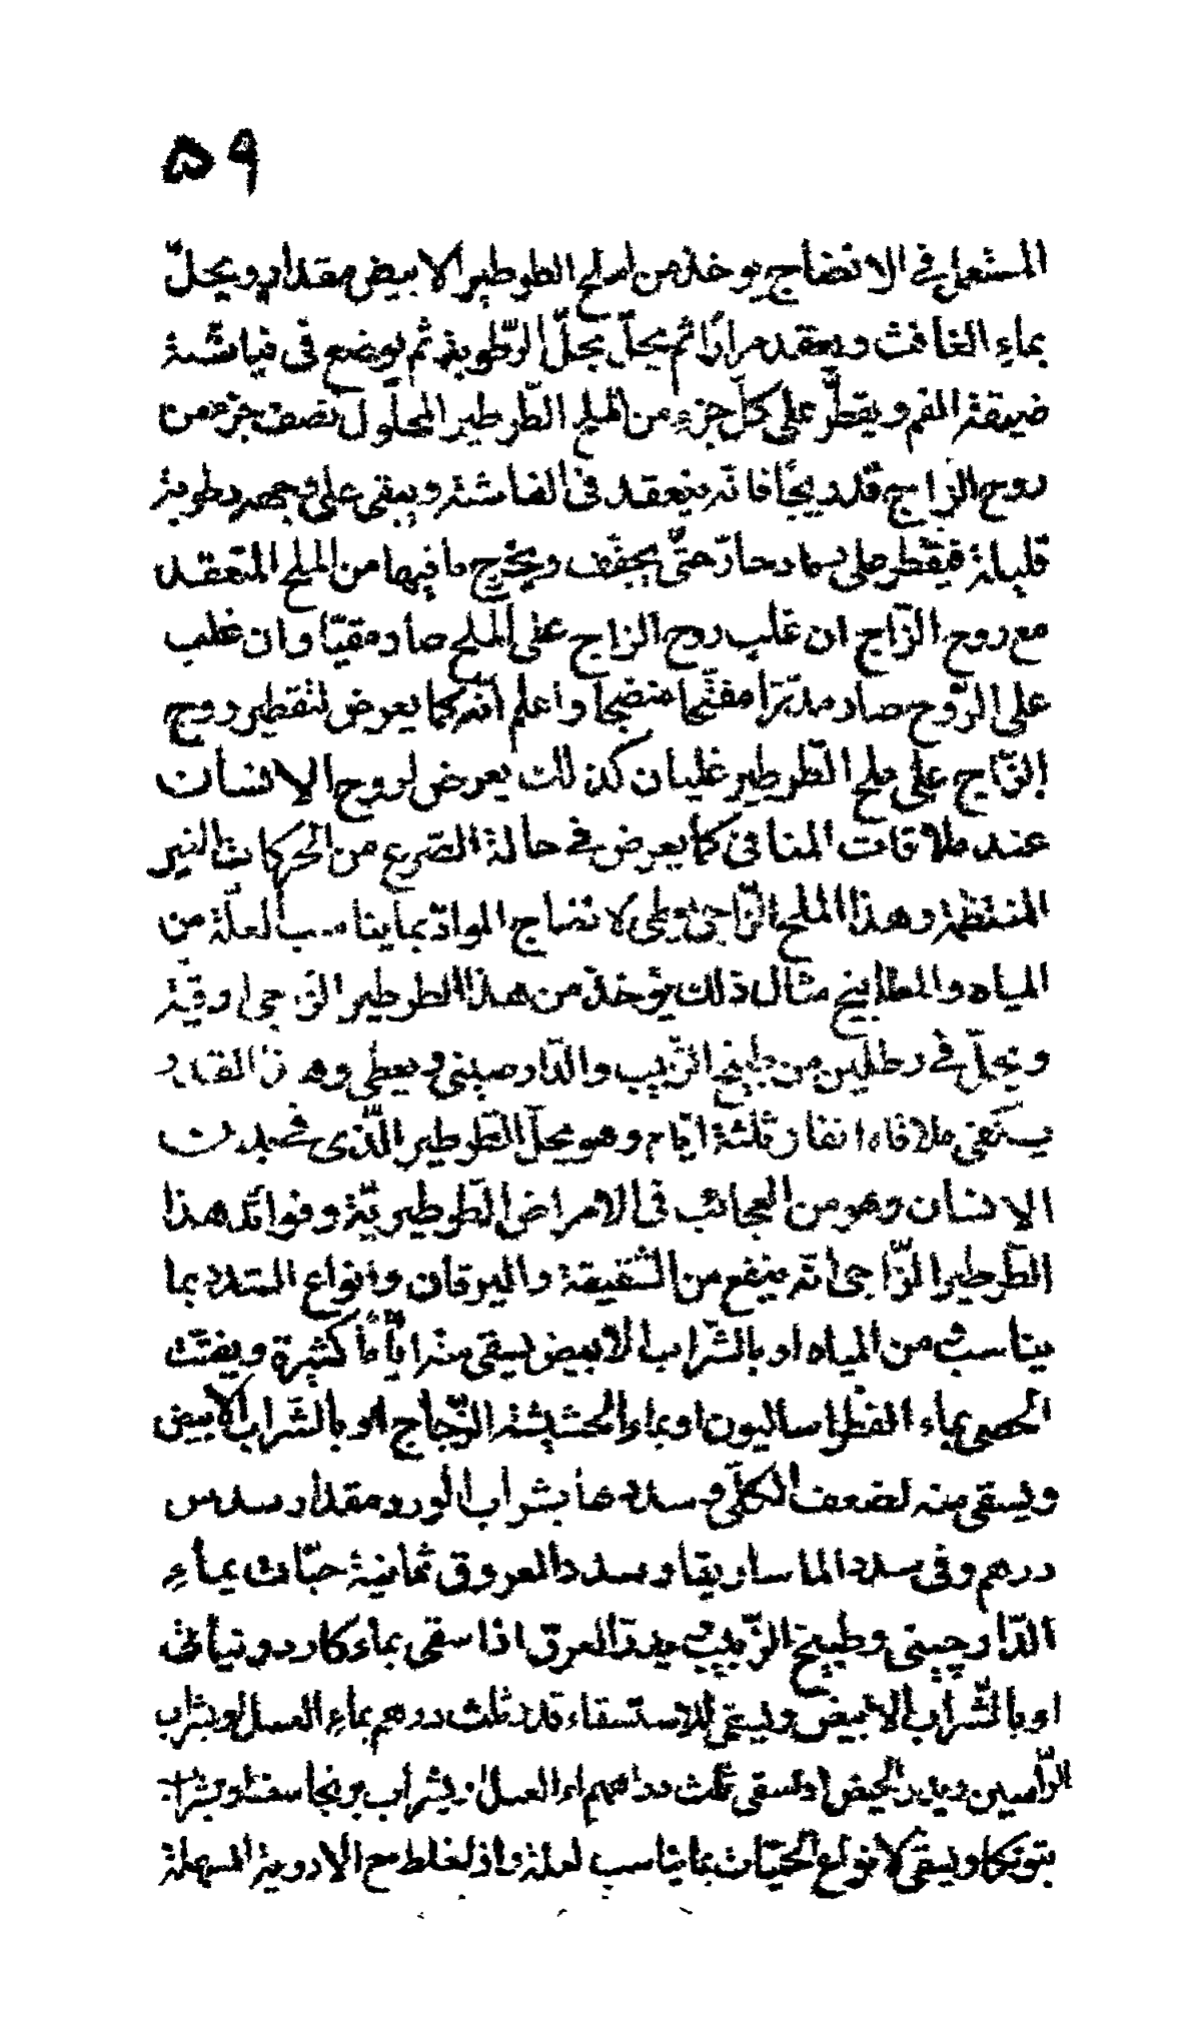 ٥٩
المستعمل في الانضاج يوخذ من املح الطرطير الابيض مقدار ويحلّ
بماءِ الغافث ويعقد مرارًا ثم يحلّ بحلّ الرّطوبة ثم يوضع في فياشة
ضيقة الفم ويقطّر على كلّ جزءٍ من الملح الطّرطير المحلول نصف جزء من
روح الزاج قلد يجًا فانّه ينعقد في الفاشة ويبقى على وجهه رطوبة
قليلة فيقطر على رماد حارّ حتّى يجفّف ويخرج ما فيها من الملح المتعقد
مع روح الزّاج ان غلب روح الزاج على الملح صار مقيّا وان غلب
على الرّوح صار مدبّرا مفتّحا منضجا واعلم انّه كما يعرض لتقطير روح
الزّاج على ملح الطّرطير غليان كذلك يعرض لروح الانسان
عند ملاقات المنافى كما يعرض في حالة الصّرع من الحركات الغير
المنتظمة وهذا الملح الزّاجى يعطى لانضاج الموادّ بما يناسب العلّة من
المياه والمطابيخ مثال ذلك يؤخذ من هذا الطرطير الزاجى اوقيّة
ويحلّ في رطلين من طبيخ الزّبيب والدّارصينى ويعطى وهذا القدر
يكفى ملاقاه انفار ثلثة ايّام وهو يحلّ الطّرطير الّذى في بدن
الانسان وهو من العجائب في الامراض الطّرطيريّة وفوائد هذا
الطّرطير الزّاجى انّه ينفع من الشقيقة واليرقان وانواع السّدد بما
يناسب من المياه او بالشّراب الابيض يسقى منه ايّامًا كثيرة ويفتّت
الحصى بماء الفطراساليون او بماء الحشيشة الزّجاج او بالشّراب الابيض
ويسقى منه لضعف الكلّى وسددها بشراب الورد مقدار سدس
درهم وفي سدد الماساريقا وسدد العروق ثمانية حبّات بماءِ
الدّارچينى وطبيخ الزّبيب يدرّ العرق اذا سقى بماء كاردونيانى
او بالشّراب الابيض ويسقى للاستسقاء قدر ثلث درهم بماءِ العسل او بشراب
الرّاسين ويدر الحيض اذ يسقى ثلث درهم بماء العسل او بشراب برنجاسف او بشراب
بتونكا ويسقى لانواع الحيّات بما يناسب لعلة واذ لغلط مع الادوية المسهلة